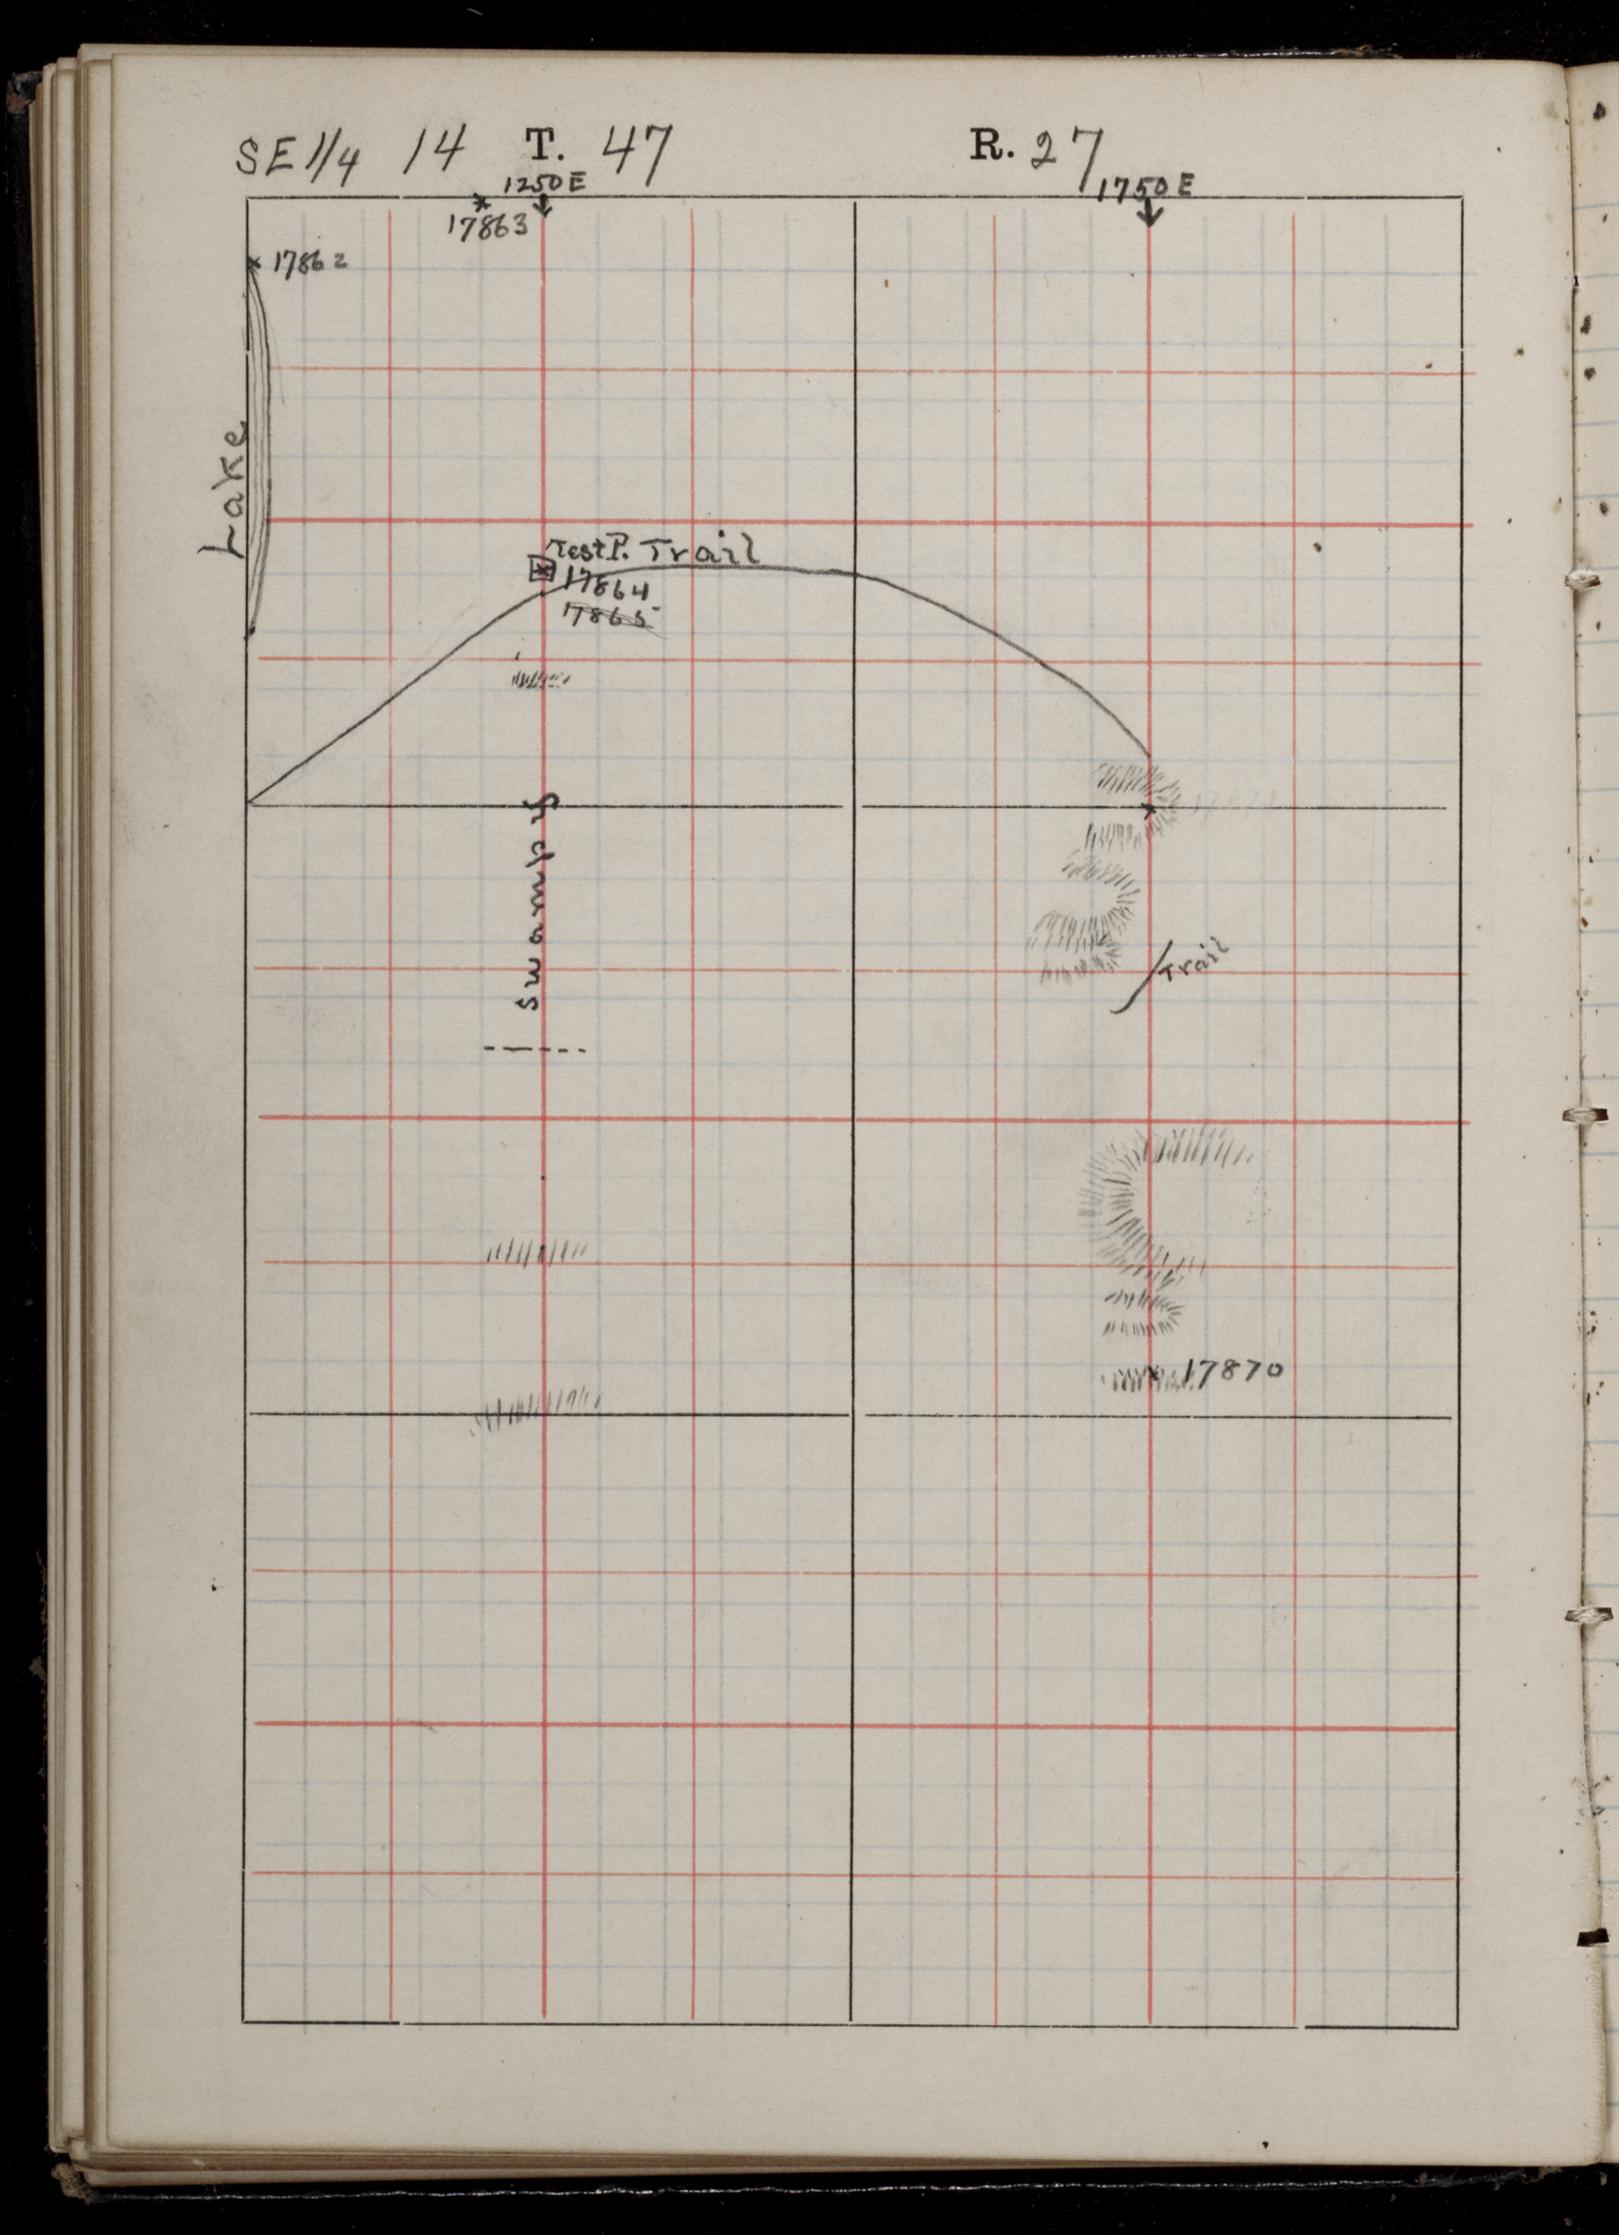 SE 1/4 14 T. 47 R. 27
1250 E 1750 E
17863
17862
Lake
Test P. Trail
17864
17865
Swamp
Trail
17870